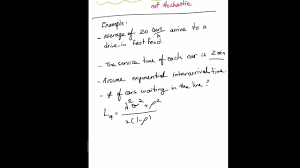 not stochastic
Example:
- average of 20 cars arrive to a
drive-in fast food
- The service time of each car is 2 min
- Assume exponential interarrival time
- # of cars waiting in the line?
Lq = λ²σ² + ρ² / 2(1-ρ)